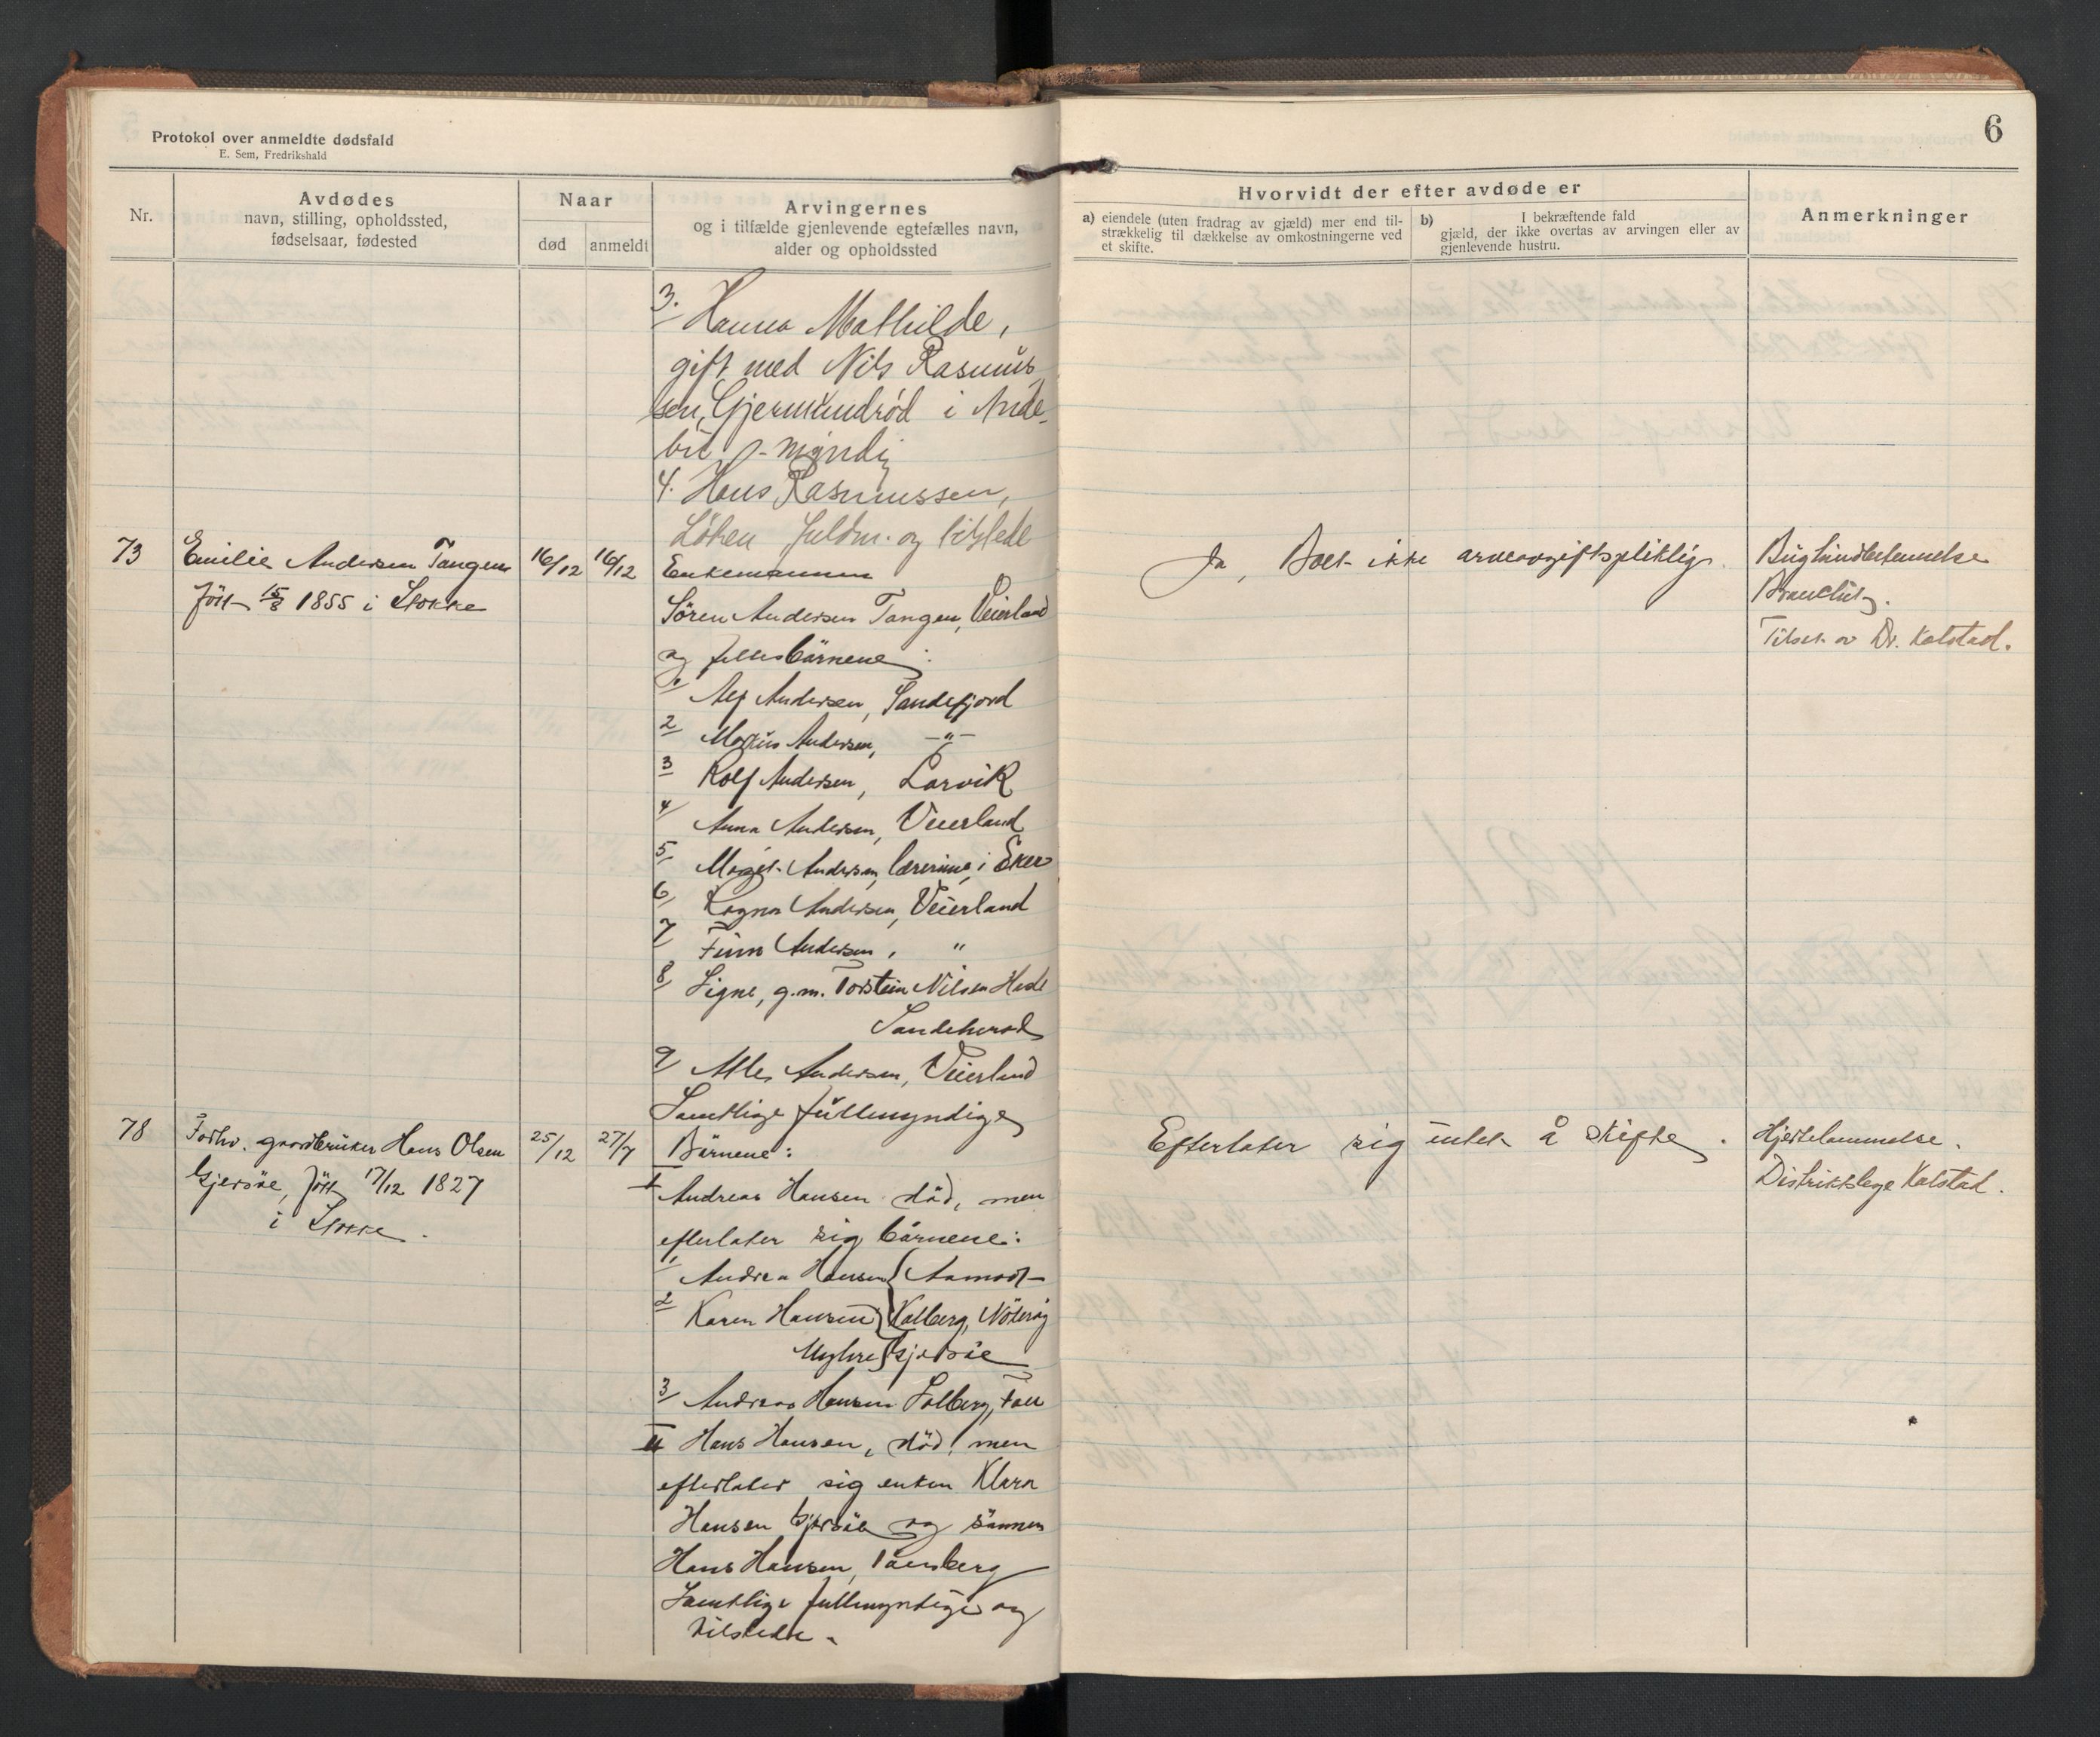 Protokol over anmeldte dødsfald
E. Sem, Fredrikshald
6
Nr.
Avdødes
navn, stilling, opholdssted,
fødselsaar, fødested
Naar
død
anmeldt
Arvingernes
og i tilfælde gjenlevende egtefælles navn,
alder og opholdssted
Hvorvidt der efter avdøde er
a) eiendele (uten fradrag av gjæld) mer end til-
strækkelig til dækkelse av omkostningerne ved
et skifte.
b) I bekræftende fald
gjæld, der ikke overtas av arvingen eller av
gjenlevende hustru.
Anmerkninger
3. Hanna Mathilde,
gift med Nils Rasmus
sen, Gjermundrød i Ande-
bu - myndig
4. Hans Rasmussen,
Løken fuldm. og tilstede
73
Emilie Andersen Tangen
født 15/8 1855 i Stokke
16/12
16/12
Enkemannen
Sören Andersen Tangen, Veierland
og fellesbörnene:
1 Alf Andersen, Sandefjord
2 Markus Andersen, -"-
3 Rolf Andersen, Larvik
4 Anna Andersen, Veierland
5 Margit Andersen, lærerinne, i Eker
6 Ragna Andersen, Veierland
7 Finn Andersen, "
8 Signe, g.m. Torstein Nilsen
Sandeherad
9 Andersen, Veierland
Samtlige fullmyndige
Ja, Boet ikke arveavgiftspliktig.
Bughindbetennelse
Tilset av Dr. Kalstad.
78
Forhv. gaardbruker Hans Olsen
Gjersöe, født 17/12 1827
i Stokke.
25/12
27/7
Börnene:
I
Andreas Hansen död, men
efterlater sig börnene:
1 Andrea Hansen
2 Karen Hansen Kalberg, Nöteröy
Myhre Gjersöe
3 Andreas Hansen Solberg,
II Hans Hansen, död, men
efterlater sig enken Klara
Hansen Gjersöe og sönnen
Hans Hansen, Tönsberg
Samtlige fullmyndige og
tilstede.
Efterlater sig intet å skifte.
Hjertelammelse.
Distriktslege Kalstad.